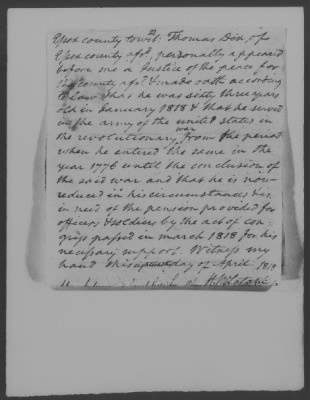 Essex county towit. Thomas Dix, of
Essex county afs.d personally appeared
before me a Justice of the peace for
the county afs.d & made oath according
to law that he was sixty three years
old in January 1818 & that he served
in the army of the united states in
the revolutionary war from the period
when he entered the same in the
year 1776 until the conclusion of
the said war and that he is now
reduced in his circumstances & is
in need of the pension provided for
officers & soldiers by the act of con-
gress passed in march 1818 for his
necessary support. Witness my
hand this day of April 1819